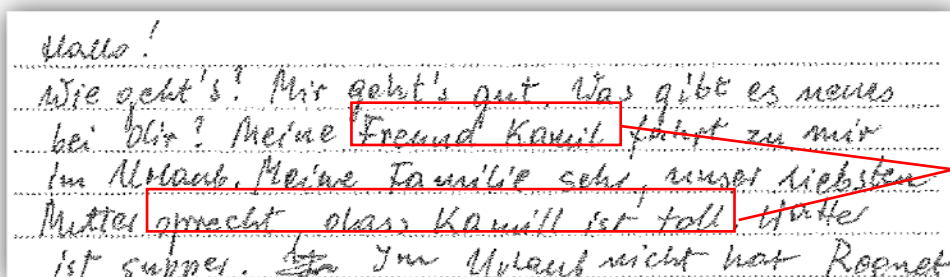 Hallo!
Wie geht's? Mir geht's gut. Was gibt es neues
bei Dir? Meine Freund Kamil fährt zu mir
im Urlaub. Meine Familie sehr, unser liebsten
Mutter sprecht, dass Kamill ist toll. Hütte
ist supper. Im Urlaub nicht hat Regnet